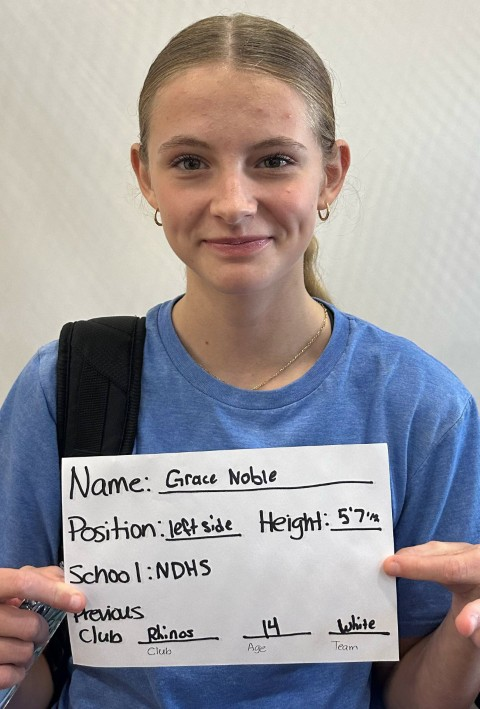 Name: Grace Noble
Position: left side Height: 5'7"
School: NDHS
Previous
Club Rhinos 14 White
Club Age Team